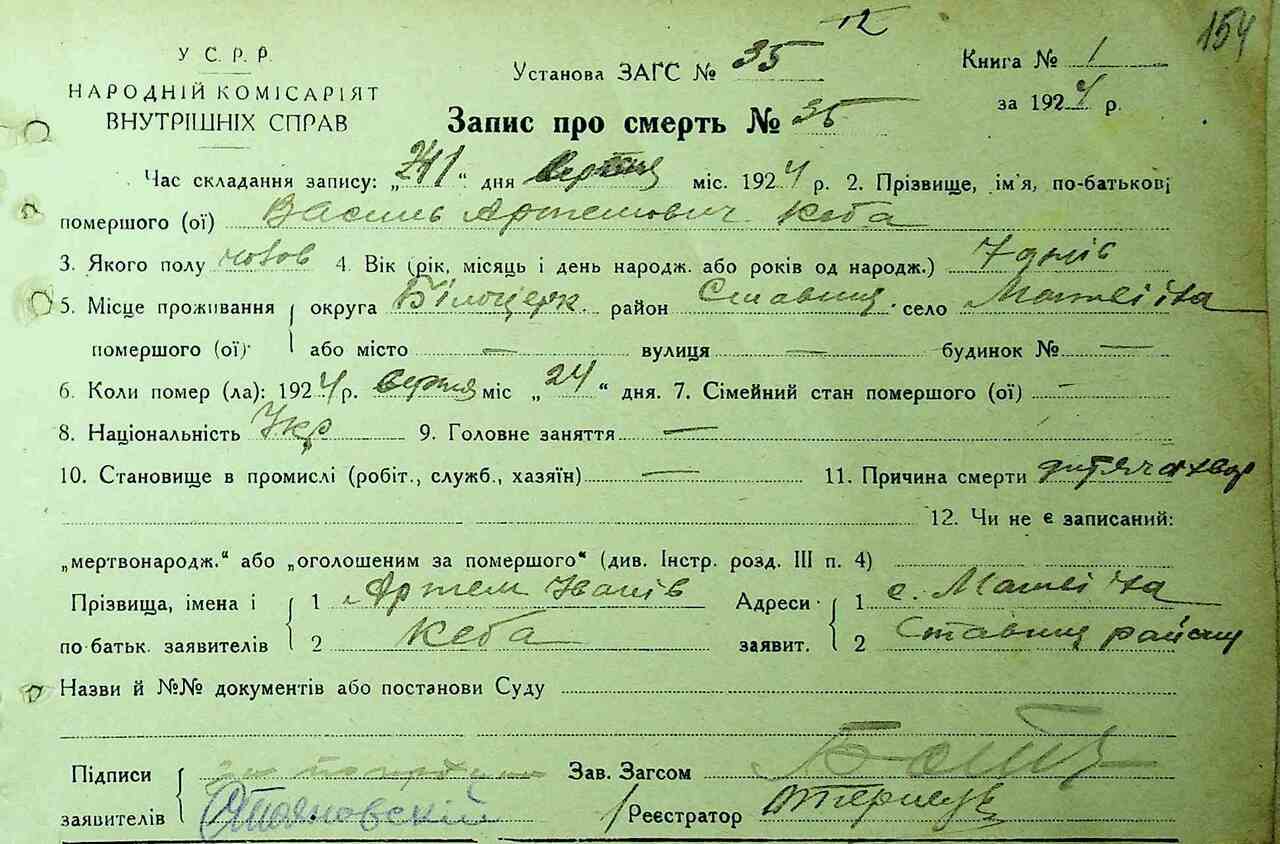 12
154
У С. Р. Р.
НАРОДНІЙ КОМІСАРІЯТ
ВНУТРІШНІХ СПРАВ
Установа ЗАГС № 35
Книга № 1
за 1924 р.
Запис про смерть № 35
Час складання запису: „ “ дня серпня міс. 1924 р. 2. Прізвище, ім'я, по-батькові
помершого (ої) Василь Артемович Кеба
3. Якого полу чолов 4. Вік (рік, місяць і день народж. або років од народж.) 7 днів
5. Місце проживання округа Білоцерк. район Ставищ. село
помершого (ої) або місто — вулиця — будинок № —
6. Коли помер (ла): 1924 р. серпня міс „24“ дня. 7. Сімейний стан помершого (ої) —
8. Національність Укр 9. Головне заняття —
10. Становище в промислі (робіт., служб., хазяїн) — 11. Причина смерти дитяча хвор
12. Чи не є записаний:
„мертвонародж.“ або „оголошеним за помершого“ (див. Інстр. розд. III п. 4)
Прізвища, імена і 1 Артем Іванів Адреси 1 с.
по батьк. заявителів 2 Кеба заявит. 2 Ставищ району
Назви й №№ документів або постанови Суду
Підписи Зав. Загсом
заявителів Стояновский Реєстратор